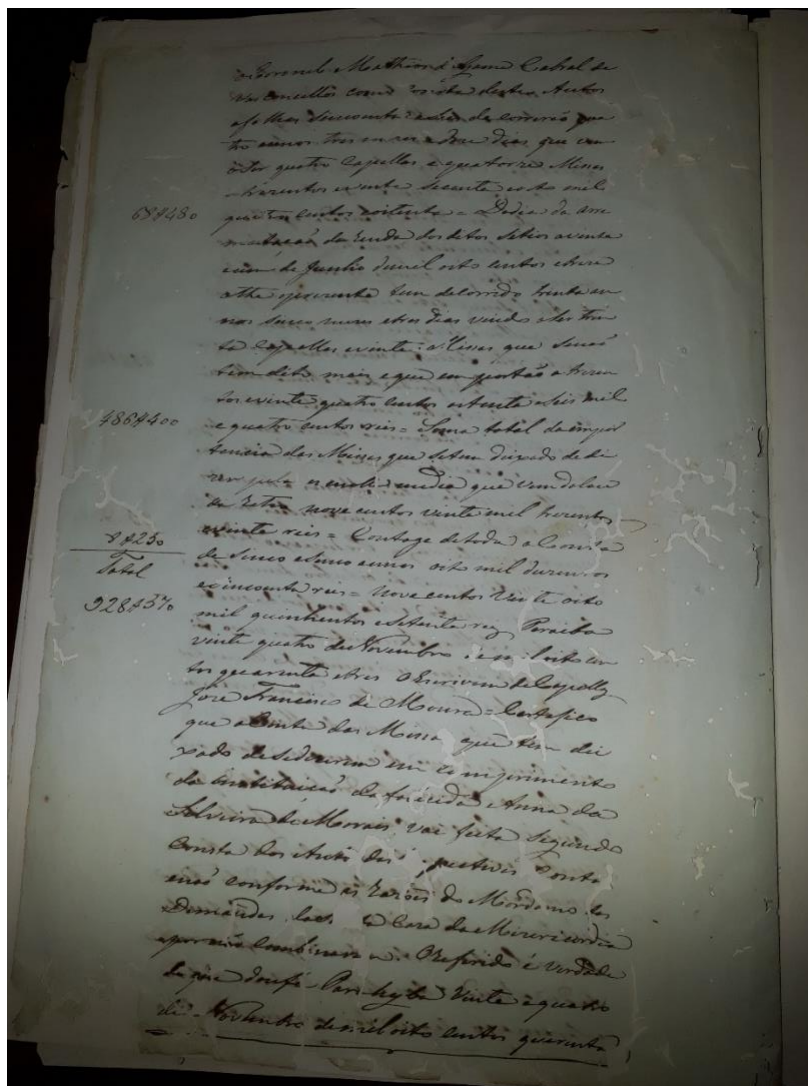 o Coronel Mathias da Gama Cabral de
Vasconcellos como consta destes Autos
a folhas cincoenta e da correrão qua
tro annos tres mezes e doze dias que
quatro Capellas e quatorze Missas
trezentos e vinte secenta e oito mil
68$480
quatro centos e oitenta = Do dia da arre
matação da renda dos ditos Sitios a vinte
e um de Junho de mil oito centos e treze
athe o presente tem decorrido trinta an
nos sinco mezes e tres dias vindo a ser trin
ta Capellas e vinte Missas que se não
tem dito mais e que emportão a trezen
tos e vinte quatro centos e oitenta e seis mil
486$400
e quatro centos reis = Soma total da impor
tancia das Missas que se tem deixado de di
zer
nove centos vinte mil trezentos
e vinte reis = Contage de toda a Conta
8$250
de sinco e sinco annos oito mil duzentos
Total
e cincoenta reis = Nove centos vinte oito
928$570
mil quinhentos e setenta reis Paraiba
vinte quatro de Novembro de mil oito cen
tos quarenta e tres O Escrivam de Capellas
Joze Francisco de Moura = Certefico
que a Conta das Missas que tem dei
xado de se dizerem em comprimento
da instituição da falecida Anna da
Silveira de Morais vai feita segundo
Consta dos Autos
e não conforme as razões do Mordomo dos
Demandas da Caza da Mizericordia
por não Combinarem. O referido é verdade
do que dou fé. Parahyba vinte e quatro
de Novembro de mil oito centos quarenta